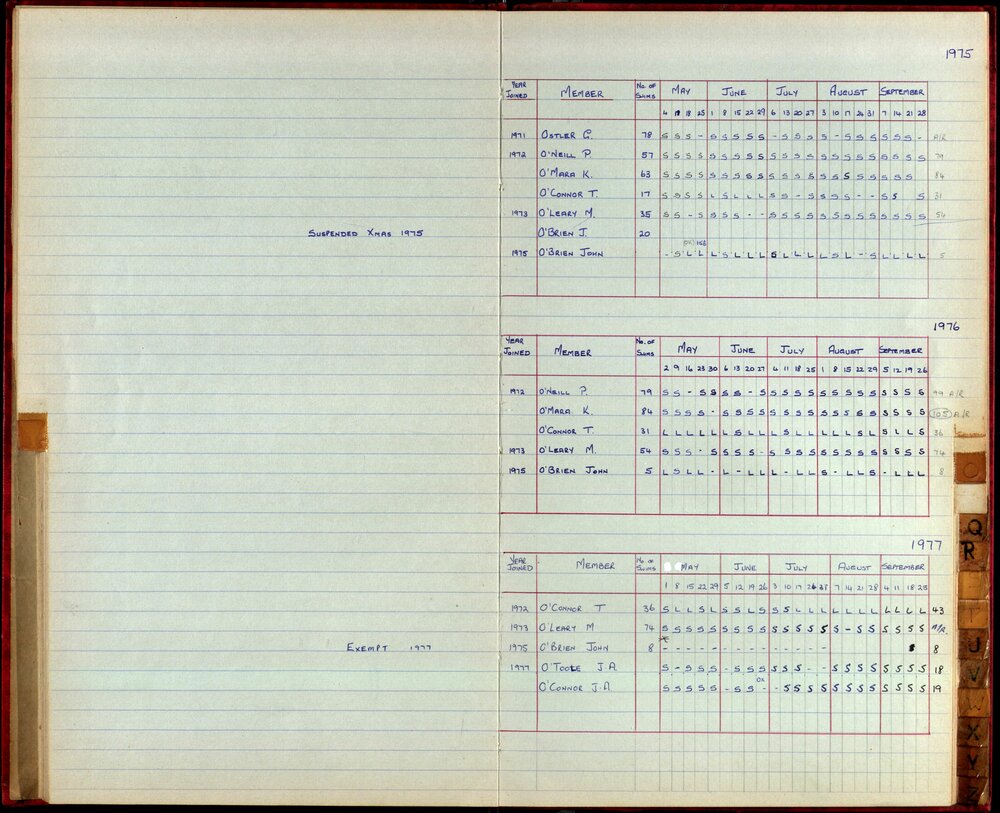 1975
YEAR JOINED MEMBER No. OF SWIMS MAY JUNE JULY AUGUST SEPTEMBER
4 11 18 25 1 8 15 22 29 6 13 20 27 3 10 17 24 31 7 14 21 28
1971 OSTLER G. 78 S S S - S S S S S - S S S S - S S S S S S - A/R
1972 O'NEILL P. 57 S S S S S S S S S S S S S S S S S S S S S S 79
O'MARA K. 63 S S S S S S S S S S S S S S S S S S S S S 84
O'CONNOR T. 17 S S S S L S L L L S S - S S S - - S S S 31
1973 O'LEARY M. 35 S S - S S S S - - S S S S S S S S S S S S S 54
SUSPENDED XMAS 1975 O'BRIEN J. 20
1975 O'BRIEN JOHN - S L L L S L L L S L L L L S L - S L L L L 5
1976
YEAR JOINED MEMBER No. OF SWIMS MAY JUNE JULY AUGUST SEPTEMBER
2 9 16 23 30 6 13 20 27 4 11 18 25 1 8 15 22 29 5 12 19 26
1972 O'NEILL P. 79 S S - S S S S - S S S S S S S S S S S S S S 99 A/R
O'MARA K. 84 S S S S - S S S S S S S S S S S S S S S S S 105 A/R
O'CONNOR T. 31 L L L L L L S L L L S L L L L L S L S L L S 36
1973 O'LEARY M. 54 S S S - S S S S - S S S S S S S S S S S S S 74
1975 O'BRIEN JOHN 5 L S L L - L - L L L - L L S - L L S - L L L 8
1977
YEAR JOINED MEMBER No. OF SWIMS MAY JUNE JULY AUGUST SEPTEMBER
1 8 15 22 29 5 12 19 26 3 10 17 7 14 21 28 4 11 18 25
1972 O'CONNOR T 36 S L L S L S S L S S S L L L L L L L L L L L 43
1973 O'LEARY M 74 S S S S S S S S S S S S S S S - S S S S S S A/R
EXEMPT 1977 1975 O'BRIEN JOHN 8 - - - - - - - - - - - - - 8
1977 O'TOOLE J A S - S S S - S S S S S S - - S S S S S S S S 18
OK
O'CONNOR J.A. S S S S S - S S - - S S S S S S S S S S S S 19
O
Q
R
T
U
V
W
X
Y
Z